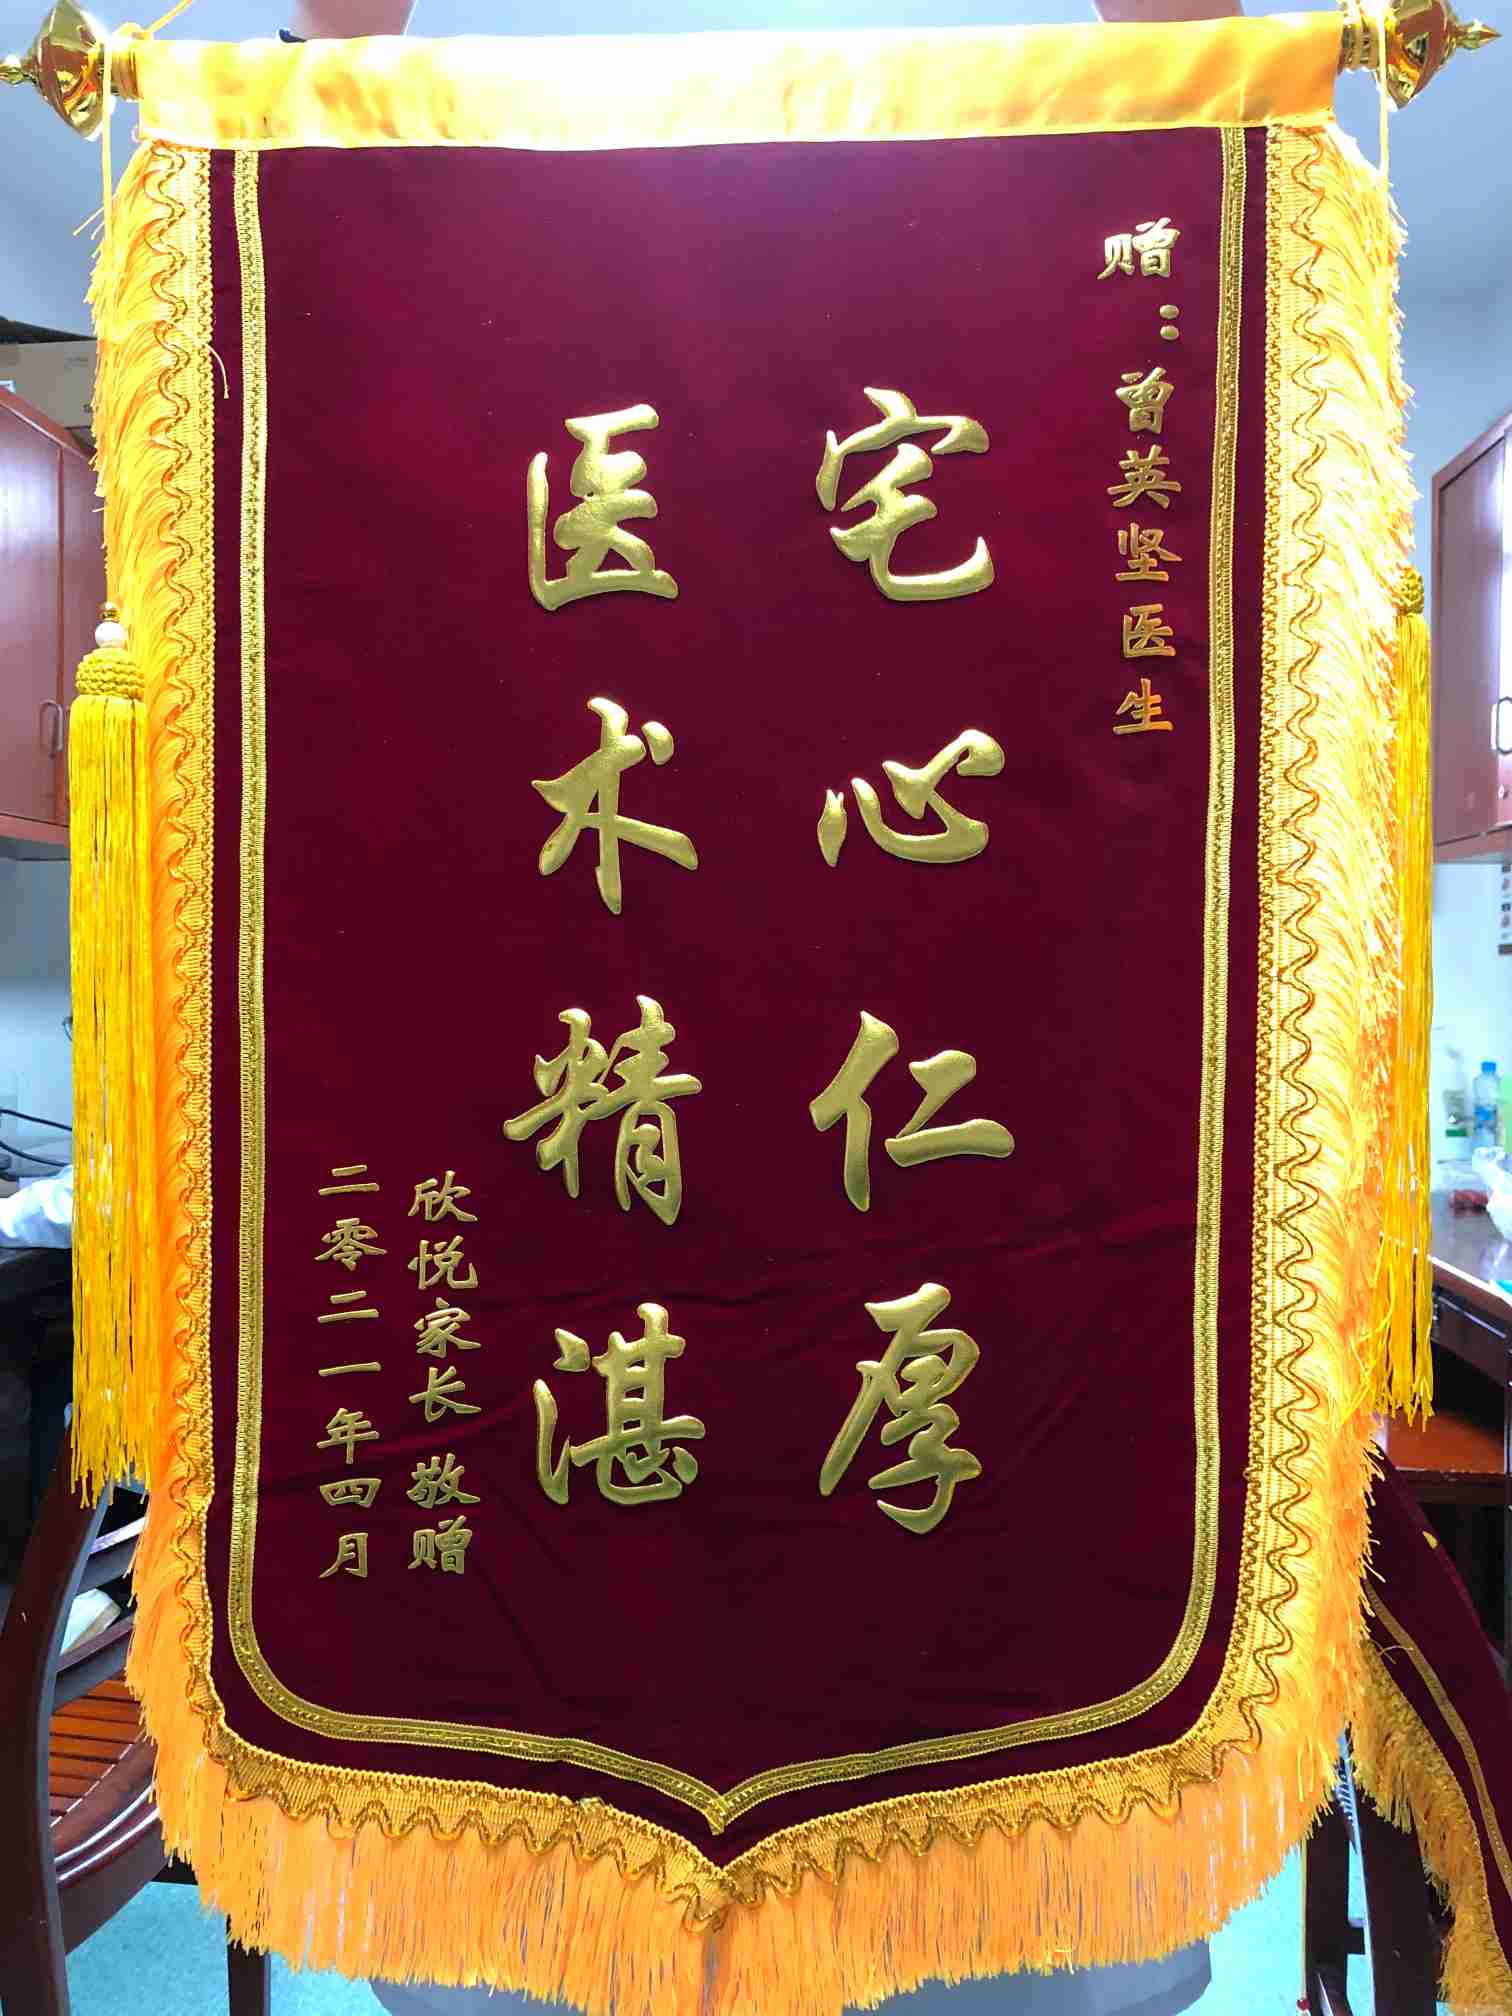 赠：曾英坚医生
宅心仁厚
医术精湛
欣悦家长 敬赠
二零二一年四月